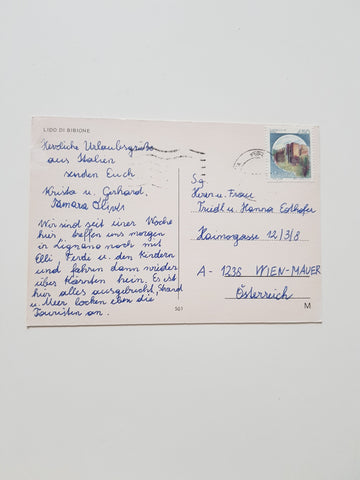 LIDO DI BIBIONE
Herzliche Urlaubsgrüße
aus Italien
senden Euch
Krista u. Gerhard.
Tamara
Wir sind seit einer Woche
hier treffen uns morgen
in Lignano noch mit
Elli, Ferdi u. den Kindern
und fahren dann wieder
über Kärnten heim. Es ist
hier alles ausgebucht, Strand
u. Meer locken eben die
Touristen an.
501
Herrn u. Frau
Friedl u. Hanna
Haimogasse 12/3/8
A - 1238 WIEN-MAUER
Österreich
M